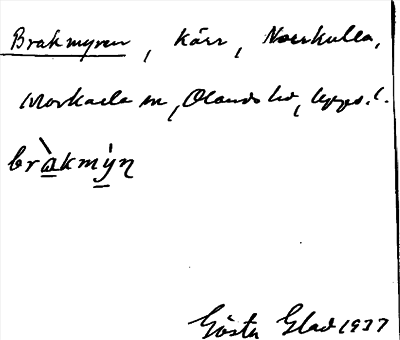 Brakmyren, Kärr, Norrkulla,
Morkarla sn, Olands hd, Upps. l.
brა̀kmýn
Gösta Glad 1937